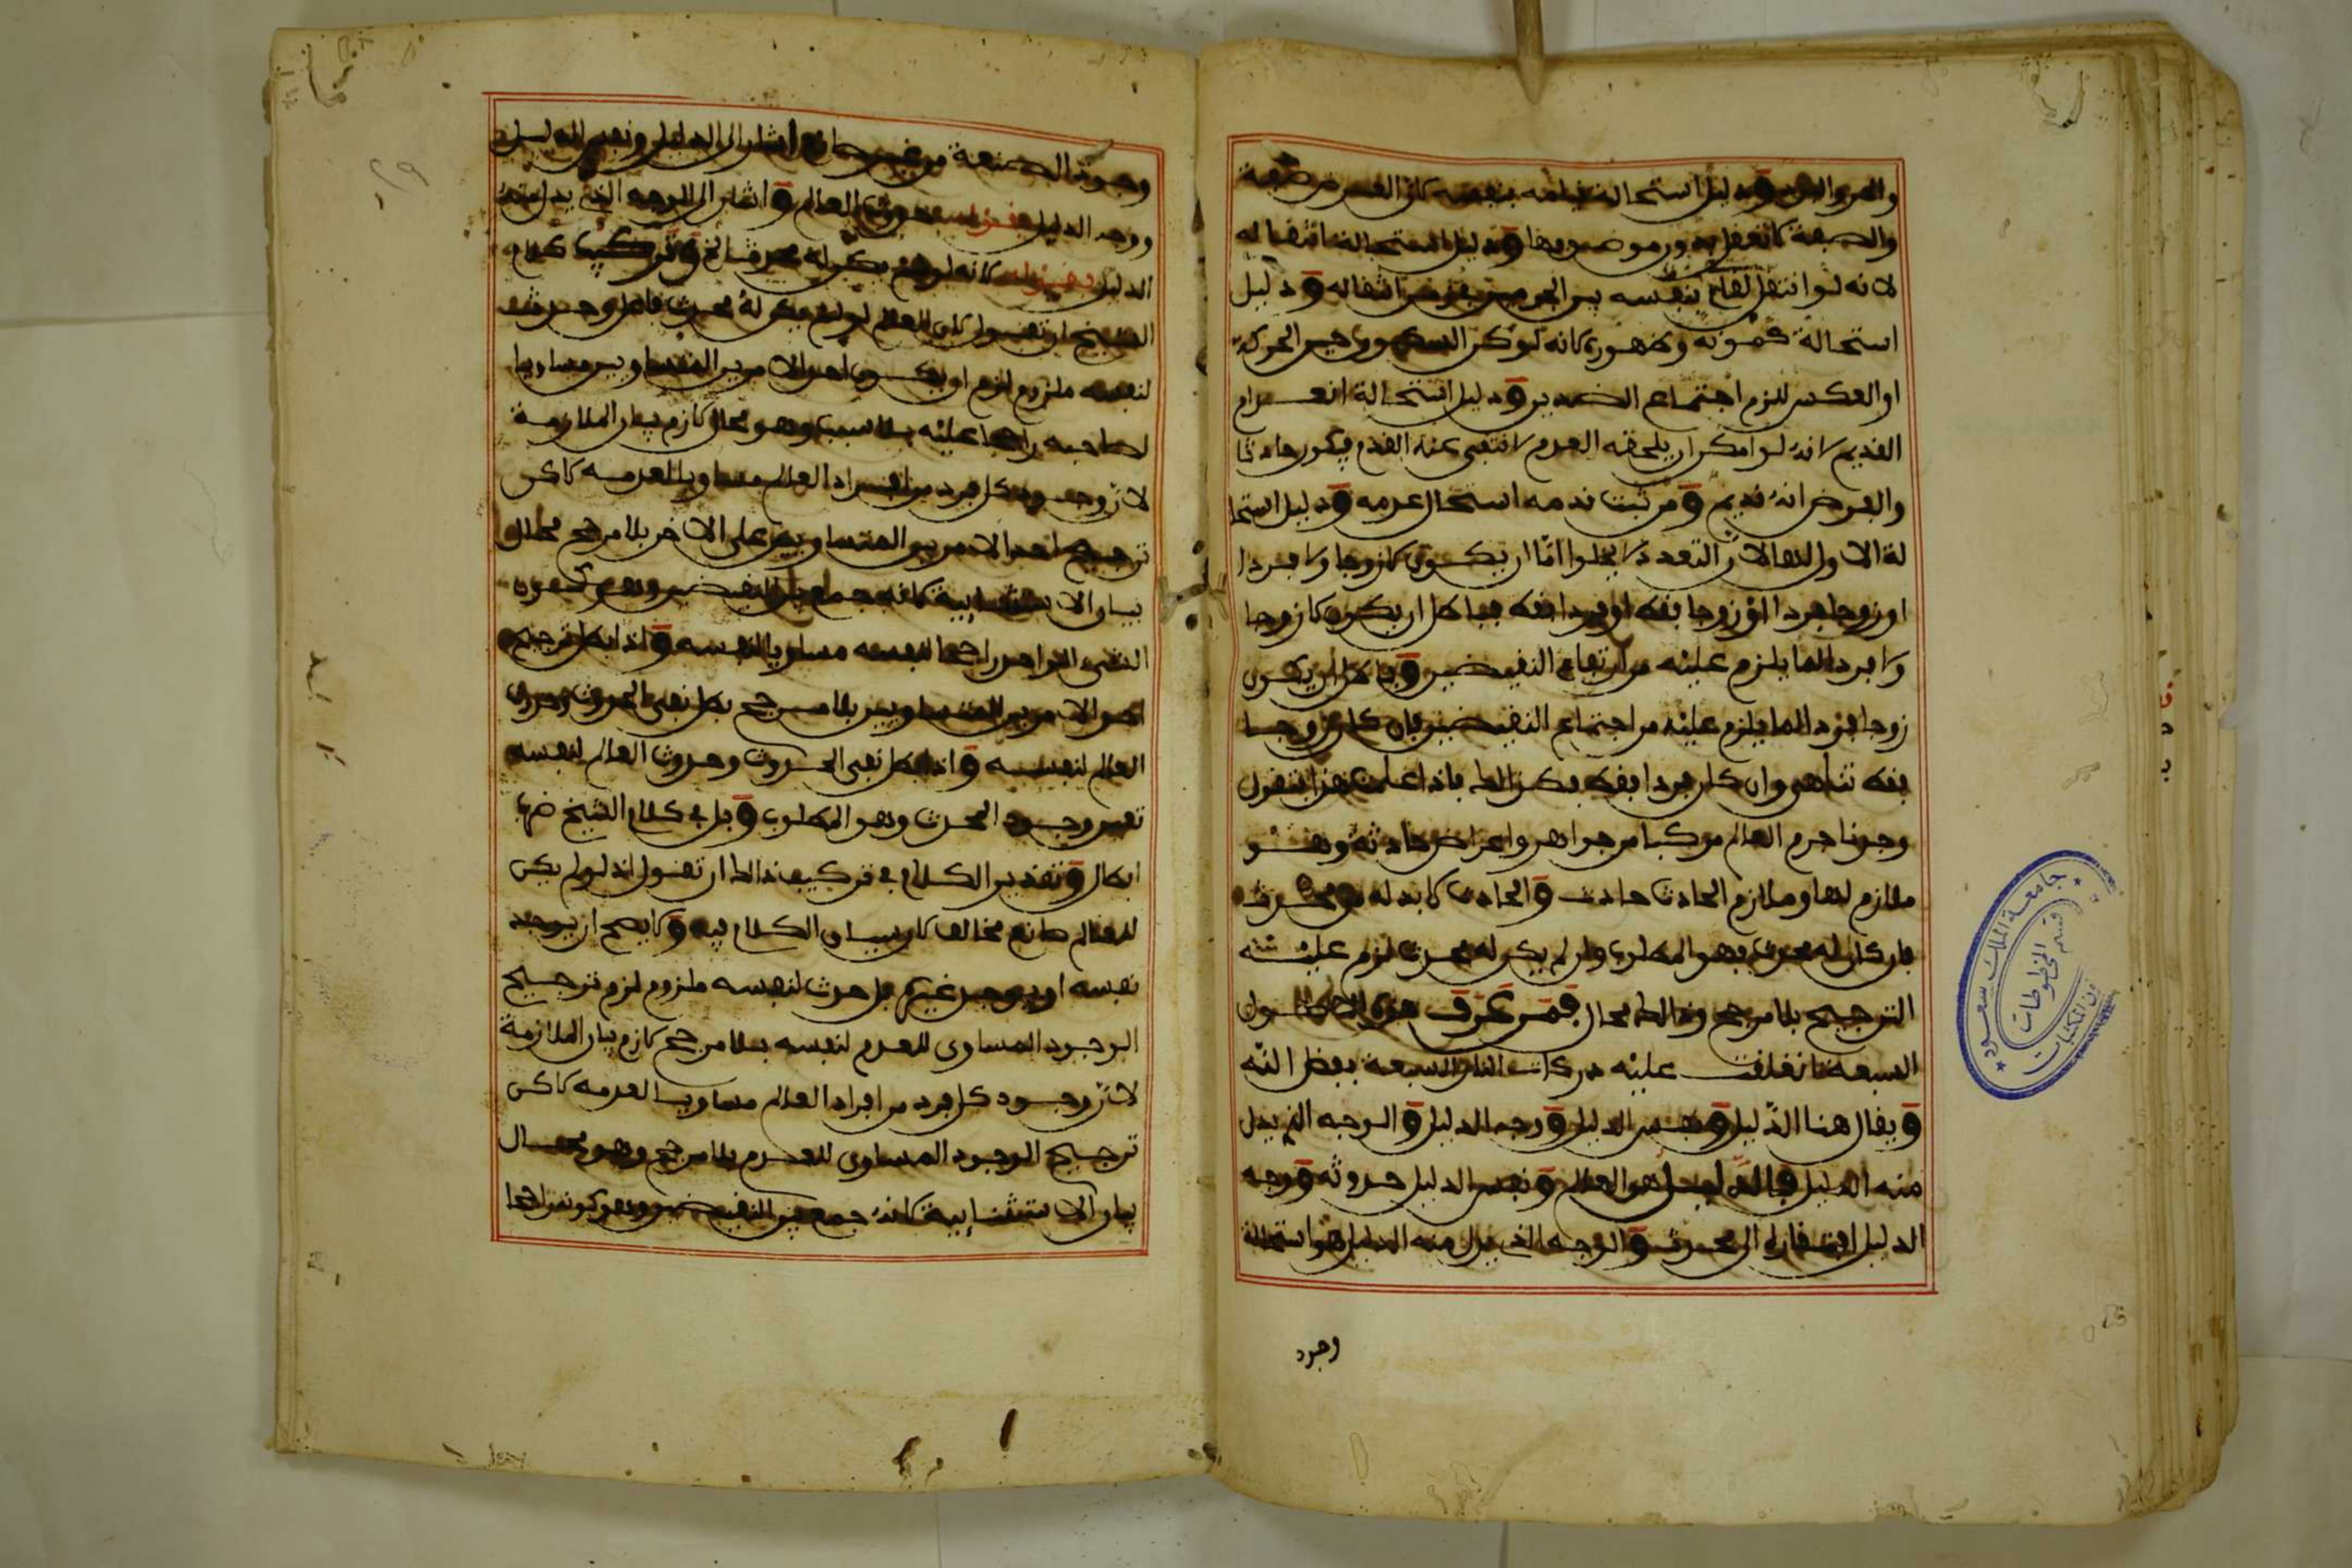 والصفة لا تعقل بدون موصوفها ودليل استحالة انتقاله
لانه لو انتقل لقام بنفسه بين الجرمين بفرض انتقاله ودليل
استحالة كمونه وظهوره لانه لو كمن السكون حين الحركة
او العكس للزم اجتماع الضدين ودليل استحالة انعدام
القديم لانه لو امكن ان يلحقه العدم لانتفى عنه القدم فيكون حادثا
والفرض انه قديم ومن ثبت قدمه استحال عدمه ودليل استحا
لة الاول لها لان التعدد لا يخلوا اما ان يكون لا زوجا ولا فردا
او زوجا فردا او زوجا بفط او فردا بفط فباطل ان يكون لا زوجا
ولا فردا لما يلزم عليه من ارتفاع النقيضين وباطل ان يكون
زوجا فردا لما يلزم عليه من اجتماع النقيضين فان كان زوجا
بفط تناهى وان كان فردا بفط فكذالك فاذا علمت هذا فنقول
وجدنا جرم العالم مركبا من جواهر واعراض حادثة وهو
ملازم لها وملازم الحادث حادث والحادث لا بد له من محدث
فان كان له محدث فهو المطلوب وان لم يكن له محدث لزم عليه
الترجيح بلا مرجح وذالك محال فمن عرف هذه الاصول
السبعة انغلقت عليه دركات النار السبعة بفضل الله
ويقال هنا الدليل ونفس الدليل ووجه الدليل والوجه الذي يدل
منه الدليل فالدليل هو العالم ونفس الدليل حدوثه ووجه
الدليل افتقاره الى محدث والوجه الذي يدل منه الدليل هو استحالة
وجود
وجود الصنعة من غير صانع اشار الى الدليل ونفس الدليل
ووجه الدليل بقوله حدوث العالم واشار الى الوجه الذي يدل منه
الدليل بقوله لانه لو لم يكن له محدث الخ وتركيب كلام
الشيخ ان تقول كان العالم لو لم يكن له محدث بل حدث
لنفسه ملزوم لزم ان يكون احد الامرين المتساويين مساويا
لصاحبه راجحا عليه بلا سبب وهو محال لازم بيان الملازمة
لان وجود كل فرد من افراد العالم مساويا لعدمه لاكن
ترجيح احد الامرين المتساويين على الاخر بلا مرجح محال
بيان الاستثنايية لانه جمع بين النقيضين وهو كون
الشيء الواحد راجحا لنفسه مساويا لنفسه واذا بطل ترجيح
احد الامرين المتساويين بلا مرجح بطل نفي الحدوث وحدوث
العالم لنفسه واذا بطل نفي الحدوث وحدوث العالم لنفسه
تعين وجود المحدث وهو المطلوب وبل في كلام الشيخ
ابطال وتقدير الكلام في تركيب ذالك ان تقول اذ لو لم يكن
للعالم صانع مخالف كان سياق الكلام فيه ولا يصح ان يوجد
نفسه او يوجد غيره بل حدث لنفسه ملزوم لزم ترجيح
الوجود المساوي للعدم لنفسه بلا مرجح لازم بيان الملازمة
لان وجود كل فرد من افراد العالم مساويا لعدمه لاكن
ترجيح الوجود المساوي للعدم بلا مرجح وهو محال
بيان الاستثنايية لانه جمع بين النقيضين وهو كونه راجحا
جامعة الملك سعود
قسم المخطوطات